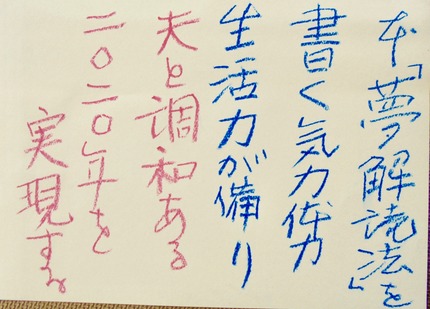 本「夢解読法」を
書く気力体力
生活力が備り
夫と調和ある
二〇二〇年を
実現する。